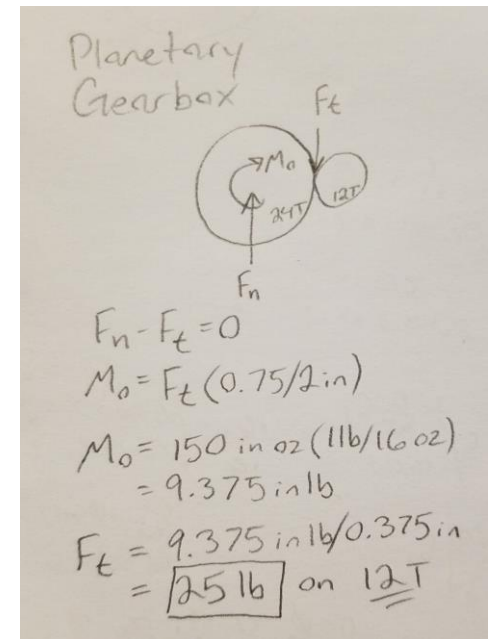 Planetary
Gearbox
Ft
Mo
24T
12T
Fn
Fn - Ft = 0
Mo = Ft (0.75/2in)
Mo = 150 in oz (1lb/16 oz)
= 9.375 inlb
Ft = 9.375 inlb/0.375in
= 25 lb on 12T